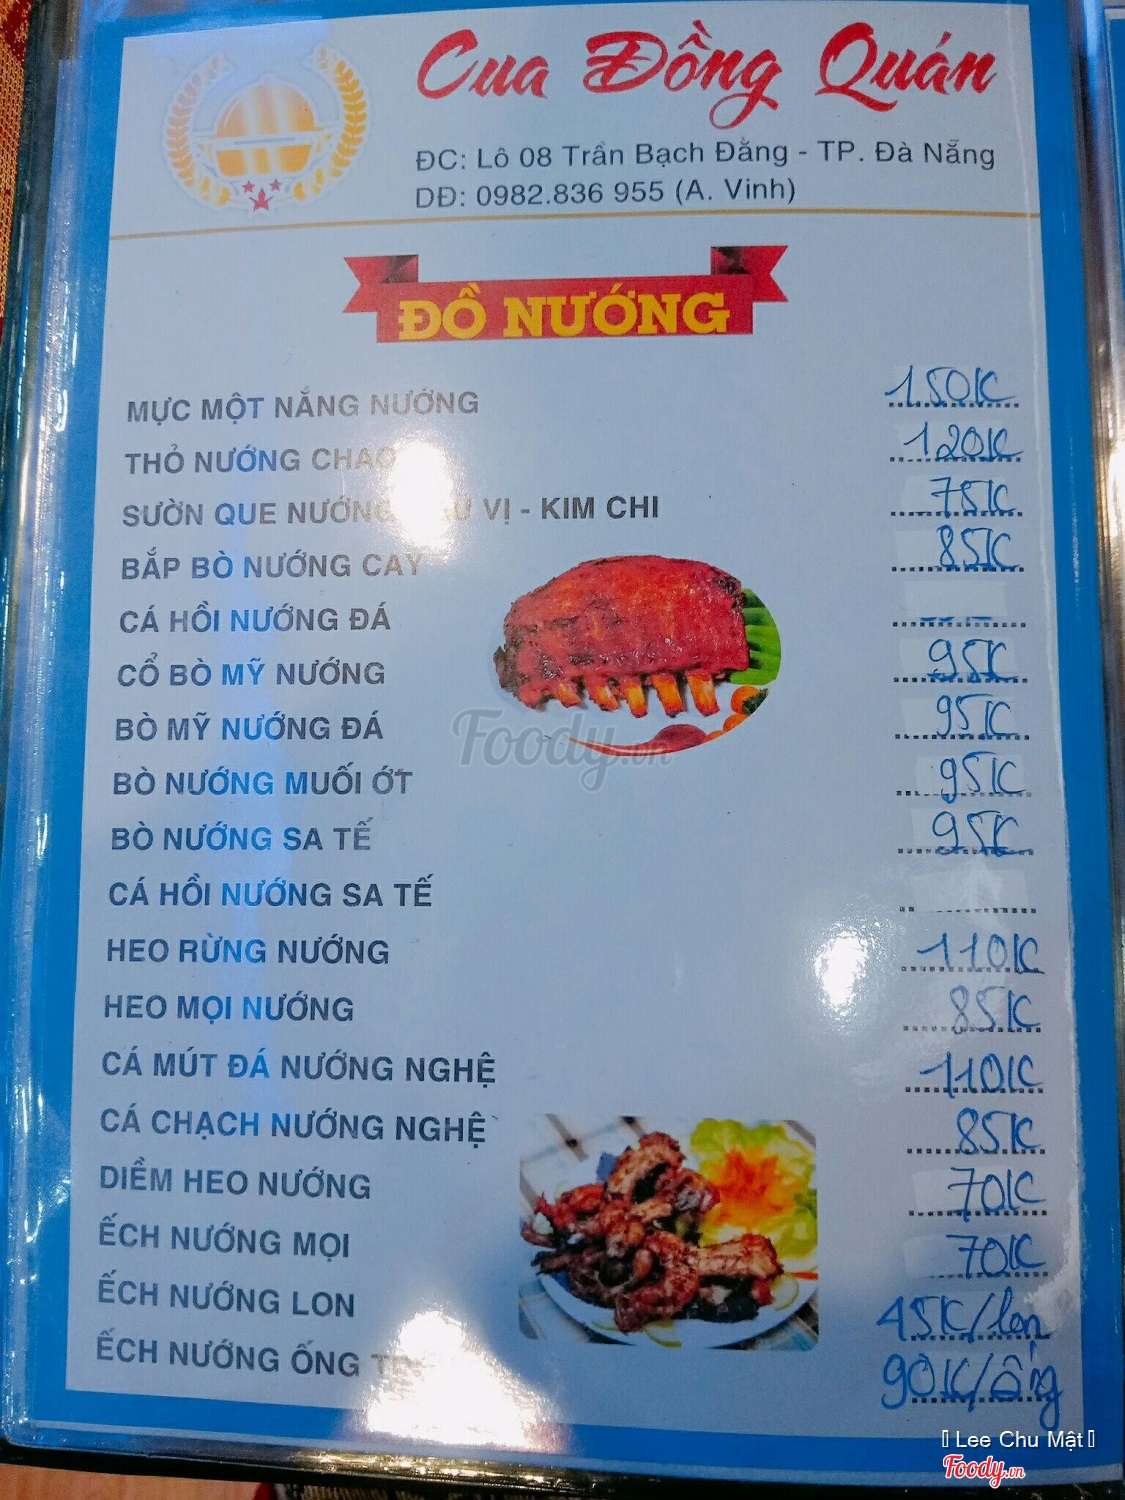 Cua Đồng Quán
ĐC: Lô 08 Trần Bạch Đằng - TP. Đà Nẵng
DĐ: 0982.836 955 (A. Vinh)
ĐỒ NƯỚNG
MỰC MỘT NẮNG NƯỚNG 150K
THỎ NƯỚNG CHAO 120K
SƯỜN QUE NƯỚNG VỊ - KIM CHI 75K
BẮP BÒ NƯỚNG CAY 85K
CÁ HỒI NƯỚNG ĐÁ
CỔ BÒ MỸ NƯỚNG 95K
BÒ MỸ NƯỚNG ĐÁ 95K
BÒ NƯỚNG MUỐI ỚT 95K
BÒ NƯỚNG SA TẾ 95K
CÁ HỒI NƯỚNG SA TẾ
HEO RỪNG NƯỚNG 110K
HEO MỌI NƯỚNG 85K
CÁ MÚT ĐÁ NƯỚNG NGHỆ 110K
CÁ CHẠCH NƯỚNG NGHỆ 85K
DIỀM HEO NƯỚNG 70K
ẾCH NƯỚNG MỌI 70K
ẾCH NƯỚNG LON 45K/lon
ẾCH NƯỚNG ỐNG 90K/ống
Foody.vn
Lee Chu Mật
Foody.vn